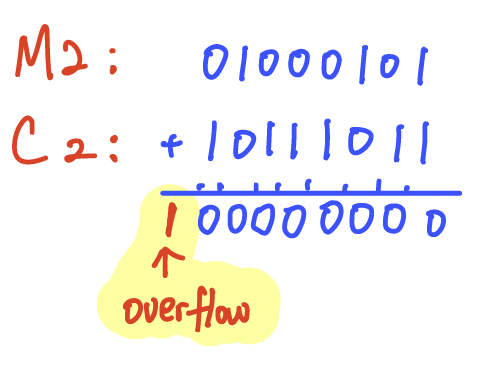 M2: 01000101
C2: + 10111011
1 00000000
↑
overflow